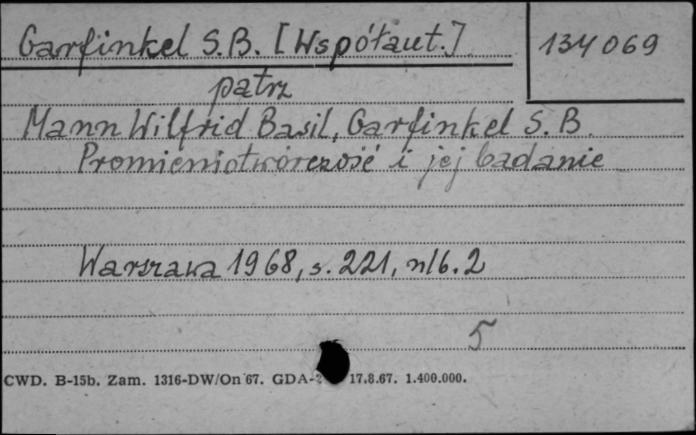 Garfinkel S.B. [Współaut.]
134069
patrz
Mann Wilfrid Basil, Garfinkel S.B.
Promieniotwórczość i jej badanie
Warszawa 1968, s. 221, nlb. 2
5
CWD. B-15b. Zam. 1316-DW/On 67. GDA- 17.8.67. 1.400.000.